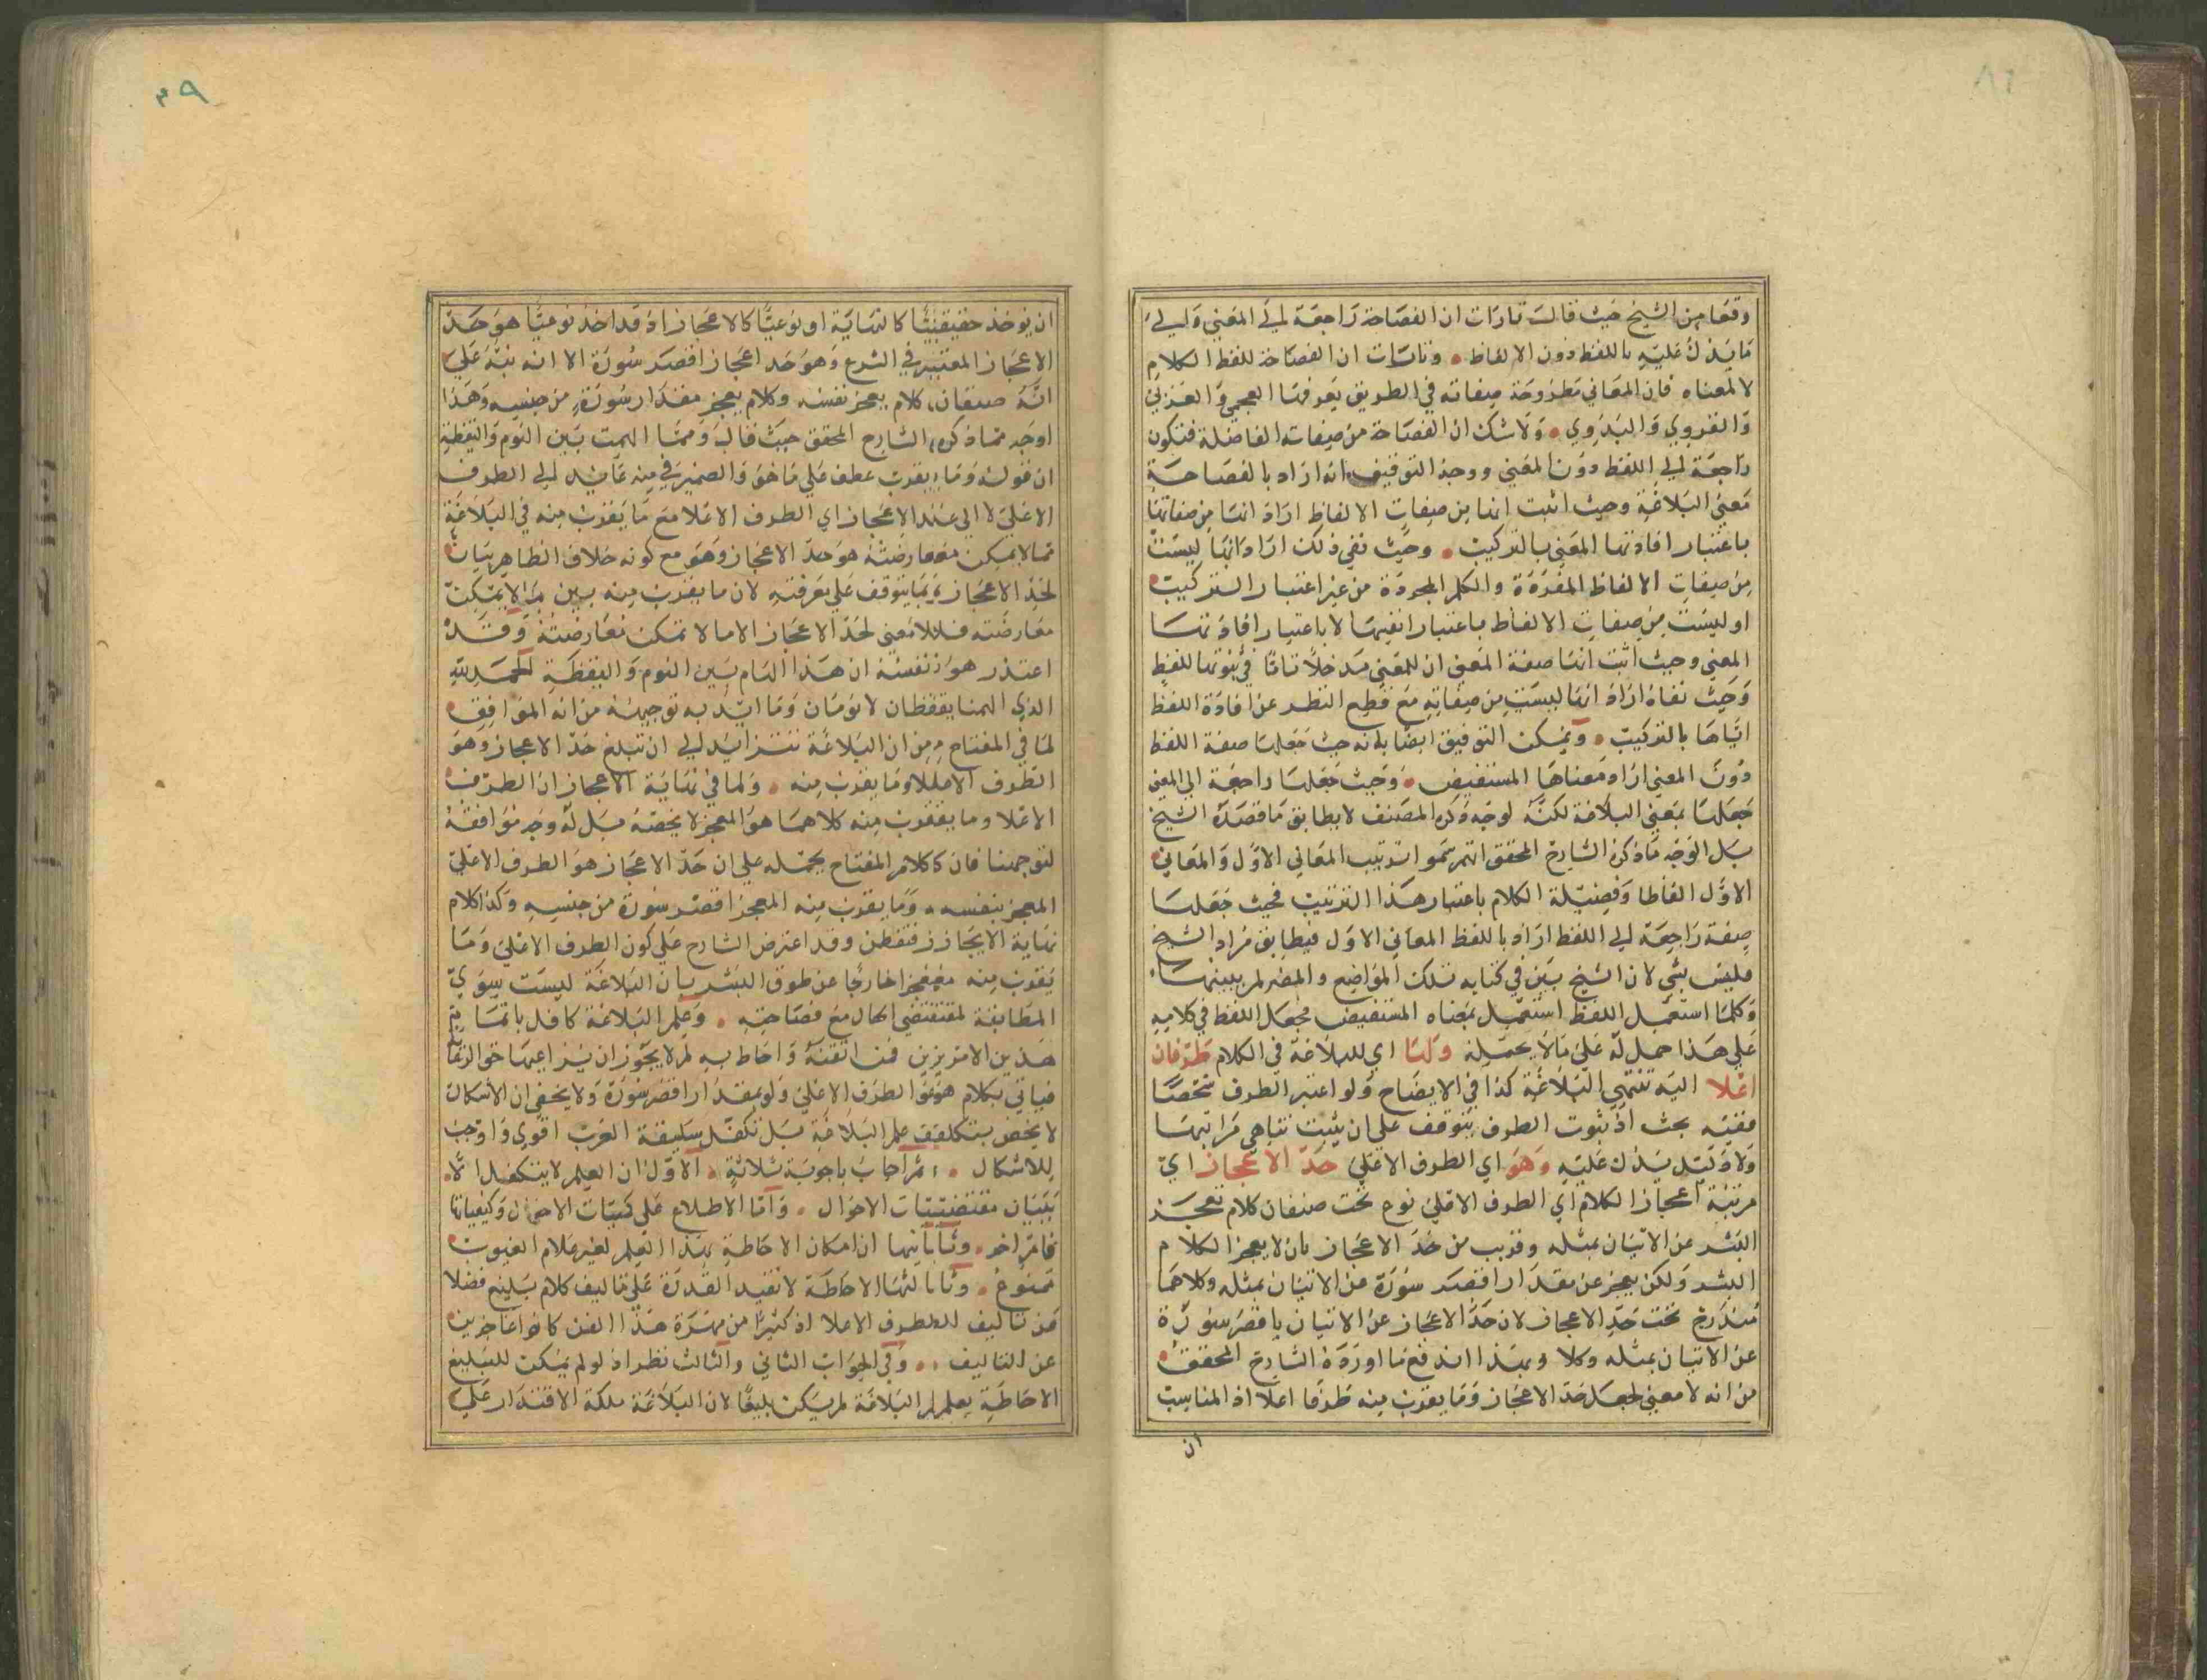 وقعا من الشيخ حيث قال تارات ان الفصاحة راجعة الي المعني والي
ما يدل عليه باللفظ دون الالفاظ وتارات ان الفصاحة للفظ الكلام
لا لمعناه فان المعاني مطروحة ميفاته في الطريق يعرفها العجمي والعزبي
والقروي والبدوي ولا شك ان الفصاحة من صفاته الفاضلة فتكون
راجعة الي اللفظ دون المعني ووجه التوفيق انه اراد بالفصاحة
معني البلاغة وحيث اثبت انها من صفات الالفاظ اراد انها من صفاتها
باعتبار افادتها المعني بالتركيب وحيث نفي ذلك اراد انها ليست
من صفات الالفاظ المفردة والكلم المجردة من غير اعتبار التركيب
او ليست من صفات الالفاظ باعتبار انفسها لا باعتبار افادتها
المعني وحيث اثبت انها صفة المعني ان للمعني مدخلا تاما في ثبوتها للفظ
وحيث نفاه اراد انها ليست من صفاته مع قطع النظر عن افادة اللفظ
اياها بالتركيب ويمكن التوفيق ايضا بانه حيث جعلها صفة اللفظ
دون المعني اراد معناها المستفيض وحيث جعلها راجعة الي المعني
جعلها بمعني البلاغة لكنه لوجه ذكره المصنف لا يطابق ما قصده الشيخ
بل الوجه ما ذكره الشارح المحقق انهم سموا ترتيب المعاني الاول والمعاني
الاول الفاظا وفضيلة الكلام باعتبار هذا الترتيب فحيث جعلها
صفة راجعة الي اللفظ اراد باللفظ المعاني الاول فيطابق مراد الشيخ
فليس بشي لان الشيخ بين في كتابه تلك المواضع والمصنف لم يبينها
وكلما استعمل اللفظ استعمل بمعناه المستفيض فجعل اللفظ في كلامه
علي هذا حمل له علي ما لا يحتمله ولها اي للبلاغة في الكلام طرفان
اعلا اليه تنتهي البلاغة كذا في الايضاح ولو اعتبر الطرف شخصيا
ففيه بحث اذ ثبوت الطرف يتوقف علي ان يثبت تناهي مراتبها
ولا دليل يدل عليه وهو اي الطرف الاعلي حد الاعجاز اي
مرتبة اعجاز الكلام اي الطرف الاعلي نوع تحت صنفان كلام تعجز
البشر عن الاتيان بمثله وقريب من حد الاعجاز بان لا يعجز الكلام
البشر ولكن يعجز عن مقدار اقصر سورة عن الاتيان بمثله وكلاهما
مندرج تحت حد الاعجاز لان حد الاعجاز عن الاتيان باقصر سورة
عن الاتيان بمثله وكلا وبهذا اندفع ما اورده الشارح المحقق
من انه لا معني لجعل حد الاعجاز وما يقرب منه طرفا اعلا اذ المناسب
ان
٣٩
ان يوخذ حقيقيا كالنهاية او نوعيا كالاعجاز اذ قد اخذ نوعيا هو حد
الاعجاز المعتبر في الشرع وهو حد اعجاز اقصر سورة الا انه نبه علي
انه صنفان كلام يعجز نفسه وكلام يعجز مقدار سورة من جنسه وهذا
اوجه مما ذكره الشارح المحقق حيث قال ومما الهمت بين النوم واليقظة
ان قوله وما يقرب عطف علي ما هو والضمير في منه عايد الي الطرف
الاعلي لا الي عند الاعجاز اي الطرف الاعلا مع ما يقرب منه في البلاغة
مما لا يمكن معارضته هو حد الاعجاز وهو مع كونه خلاف الظاهر بيان
لحد الاعجاز بما يتوقف علي معرفته لان ما يقرب منه بين بما لا يمكن
معارضته فلا معني لحد الاعجاز الا ما لا تمكن معارضته وقد
اعتذر هو نفسه ان هذا الهام بين النوم واليقظة الحمد لله
الذي الهمنا يقظان لا نومان وما ايد به توجيهه من انه الموافق
لما في المفتاح من ان البلاغة تتزايد الي ان تبلغ حد الاعجاز وهو
الطرف الاعلا وما يقرب منه ولما في نهاية الاعجاز ان الطرف
الاعلا وما يقرب منه كلاهما هو المعجز لا يخصه بل له وجه موافقة
لتوجهنا فان كلام المفتاح يحمله علي ان حد الاعجاز هو الطرف الاعلي
المعجز بنفسه وما يقرب منه المعجز اقصر سورة من جنسه وكذا كلام
نهاية الايجاز فتفطن وقد اعترض الشارح علي كون الطرف الاعلي وما
يقرب منه معجزا خارجا عن طوق البشر بان البلاغة ليست سوي
المطابقة لمقتضي الحال مع فصاحته وعلم البلاغة كافل باتمام
هذين الامرين فمن اتقنه واحاط به لم لا يجوز ان يراعيهما حق الرعاية
فياتي بكلام هو في الطرف الاعلي ولو بمقدار اقصر سورة ولا يخفي ان الاشكال
لا يخص بتكلف علم البلاغة بل تكفل سليقة العرب اقوي واوجب
للاشكال ثم اجاب باجوبة ثلاثة الاول ان العلم لا يتكفل الا
ببيان مقتضيات الاحوال واما الاطلاع علي كميات الاحوال وكيفياتها
فامر اخر وثانيها ان امكان الاحاطة بهذا العلم لغير علام الغيوب
ممنوع وثالثها الاحاطة لا تفيد القدرة علي تاليف كلام بليغ فضلا
عن تاليف للطرف الاعلا اذ كثيرا من مهرة هذا الفن كانوا عاجزين
عن التاليف وفي الجواب الثاني والثالث نظر اذ لو لم يمكن للبليغ
الاحاطة بعلم البلاغة لم يكن بليغا لان البلاغة ملكة الاقتدار علي